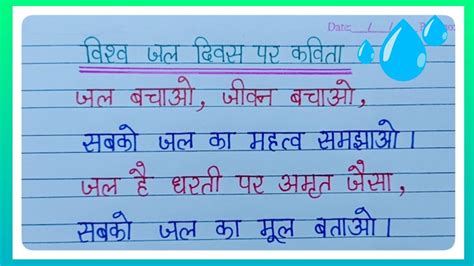 Date: / /
विश्व जल दिवस पर कविता
जल बचाओ, जीवन बचाओ,
सबको जल का महत्व समझाओ।
जल है धरती पर अमृत जैसा,
सबको जल का मूल बताओ।